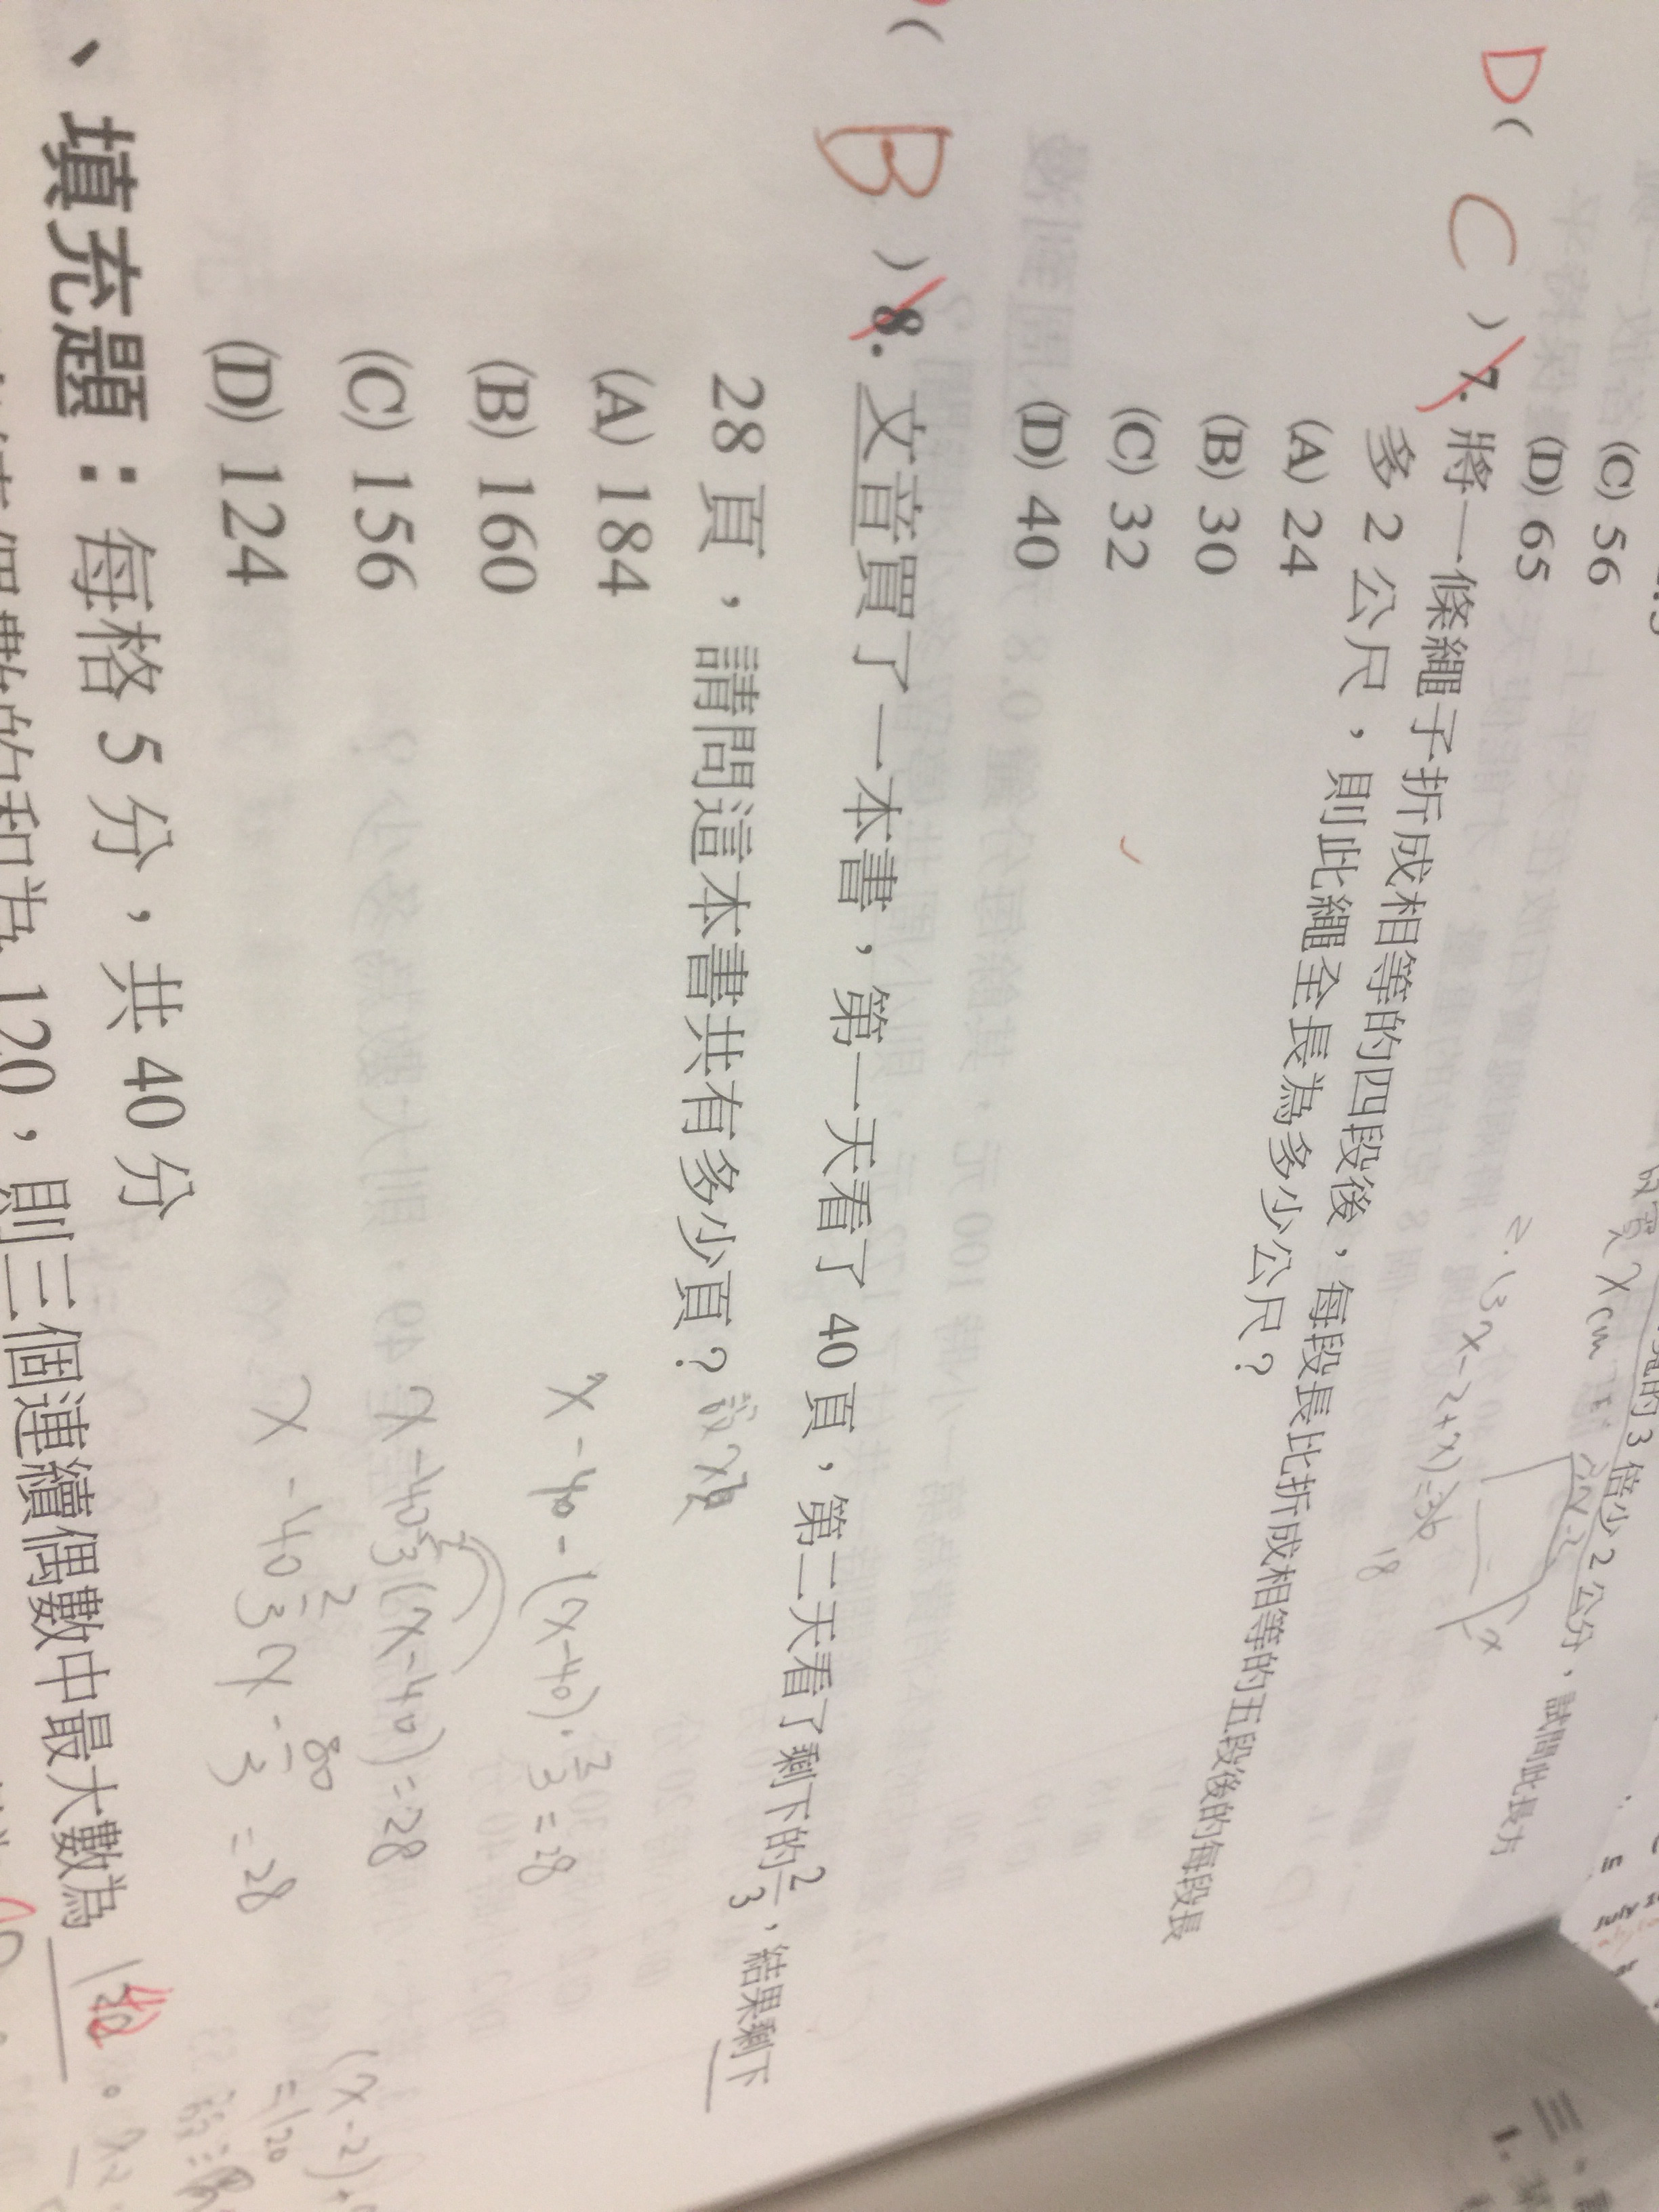 (C) 56
(D) 65
的 3 倍少 2 公分，試問此長方
2.(3x-2+x)=36
18
D( C )7. 將一條繩子折成相等的四段後，每段長比折成相等的五段後的每段長
多 2 公尺，則此繩全長為多少公尺？
(A) 24
(B) 30
(C) 32
(D) 40
( B )8. 文音買了一本書，第一天看了 40 頁，第二天看了剩下的 2/3，結果剩下
28 頁，請問這本書共有多少頁？
(A) 184
(B) 160
(C) 156
(D) 124
x-40-(x-40)·2/3=28
x-40-2/3(x-40)=28
x-40-2/3x-80/3=28
、填充題：每格 5 分，共 40 分
的和為 120，則三個連續偶數中最大數為
(x-2)+
=120